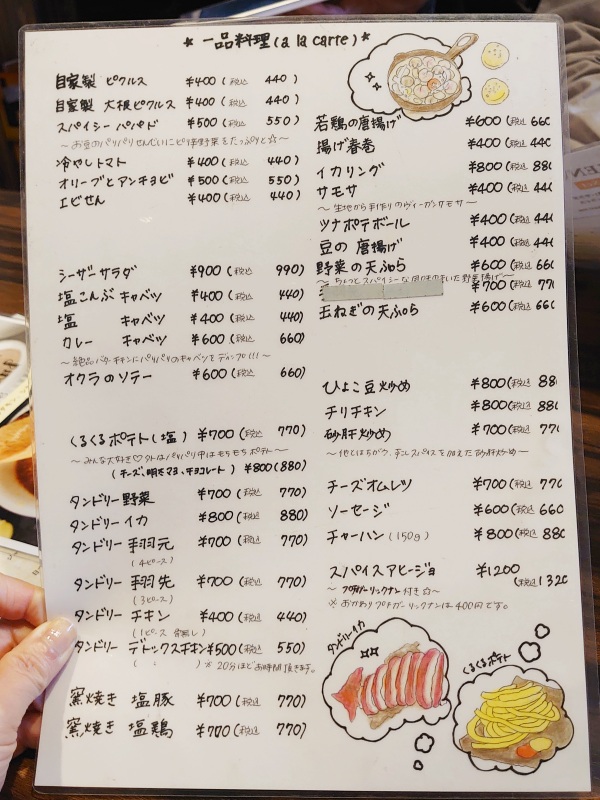 * 一品料理 (a la carte) *
自家製 ピクルス ¥400 (税込 440)
自家製 大根ピクルス ¥400 (税込 440)
スパイシー パパド ¥500 (税込 550)
冷やしトマト ¥400 (税込 440)
オリーブとアンチョビ ¥500 (税込 550)
エビせん ¥400 (税込 440)
シーザーサラダ ¥900 (税込 990)
塩こんぶ キャベツ ¥400 (税込 440)
塩 キャベツ ¥400 (税込 440)
カレー キャベツ ¥600 (税込 660)
〜絶品バターチキンにパリパリのキャベツをディップ!!!〜
オクラのソテー ¥600 (税込 660)
くるくるポテト(塩) ¥700 (税込 770)
〜みんな大好き♡外はパリパリ中はもちもちポテト〜
(チーズ、明太マヨ、チョコレート) ¥800 (880)
タンドリー野菜 ¥700 (税込 770)
タンドリーイカ ¥800 (税込 880)
タンドリー 手羽元 ¥700 (税込 770)
(4ピース)
タンドリー 手羽先 ¥700 (税込 770)
(3ピース)
タンドリー チキン ¥400 (税込 440)
(1ピース 骨無し)
タンドリー デトックスチキン ¥500 (税込 550)
※20分ほどお時間頂きます。
窯焼き 塩豚 ¥700 (税込 770)
窯焼き 塩鶏 ¥700 (税込 770)
若鶏の唐揚げ ¥600 (税込 660
揚げ春巻 ¥400 (税込 440
イカリング ¥800 (税込 880
サモサ ¥400 (税込 440
〜生地から手作りのヴィーガンサモサ〜
ツナポテボール ¥400 (税込 440
豆の 唐揚げ ¥400 (税込 440
野菜の天ぷら ¥600 (税込 660
¥700 (税込 770
玉ねぎの天ぷら ¥600 (税込 660
ひよこ豆炒め ¥800 (税込 880
チリチキン ¥800 (税込 880
砂肝炒め ¥700 (税込 770
〜他とはちがう、チョイスパイスを加えた砂肝炒め〜
チーズオムレツ ¥700 (税込 770
ソーセージ ¥600 (税込 660
チャーハン (150g) ¥800 (税込 880
スパイスアヒージョ ¥1200
(税込 1320
〜プチガーリックナン付き☆〜
※おかわりプチガーリックナンは400円です。
タンドリーイカ
くるくるポテト